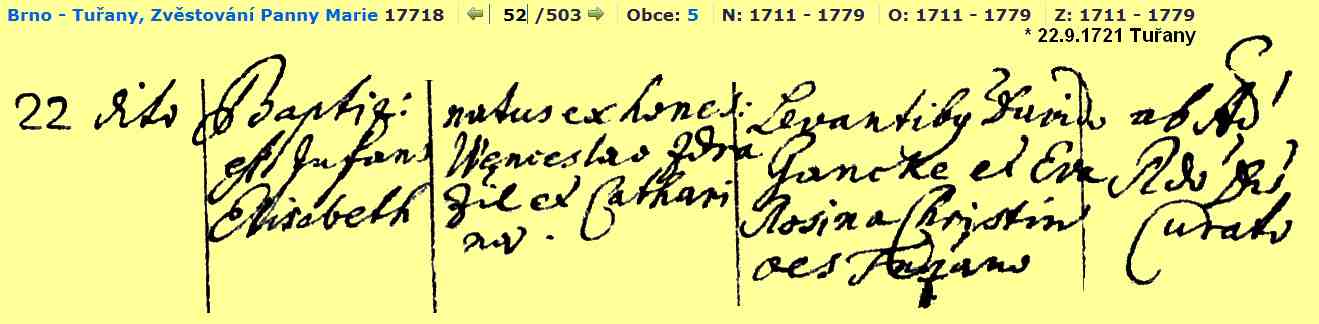 Brno - Tuřany, Zvěstování Panny Marie 17718 52 /503 Obce: 5 N: 1711 - 1779 O: 1711 - 1779 Z: 1711 - 1779
* 22.9.1721 Tuřany
22 dito
Baptiz:
est Infans
Elisabeth
natus ex hones:
Wenceslao Zdra
Zil et Cathari
na.
Levantiby David
Gancke et Eva
Rosina Christin
oes
ab
Rdo
Curato